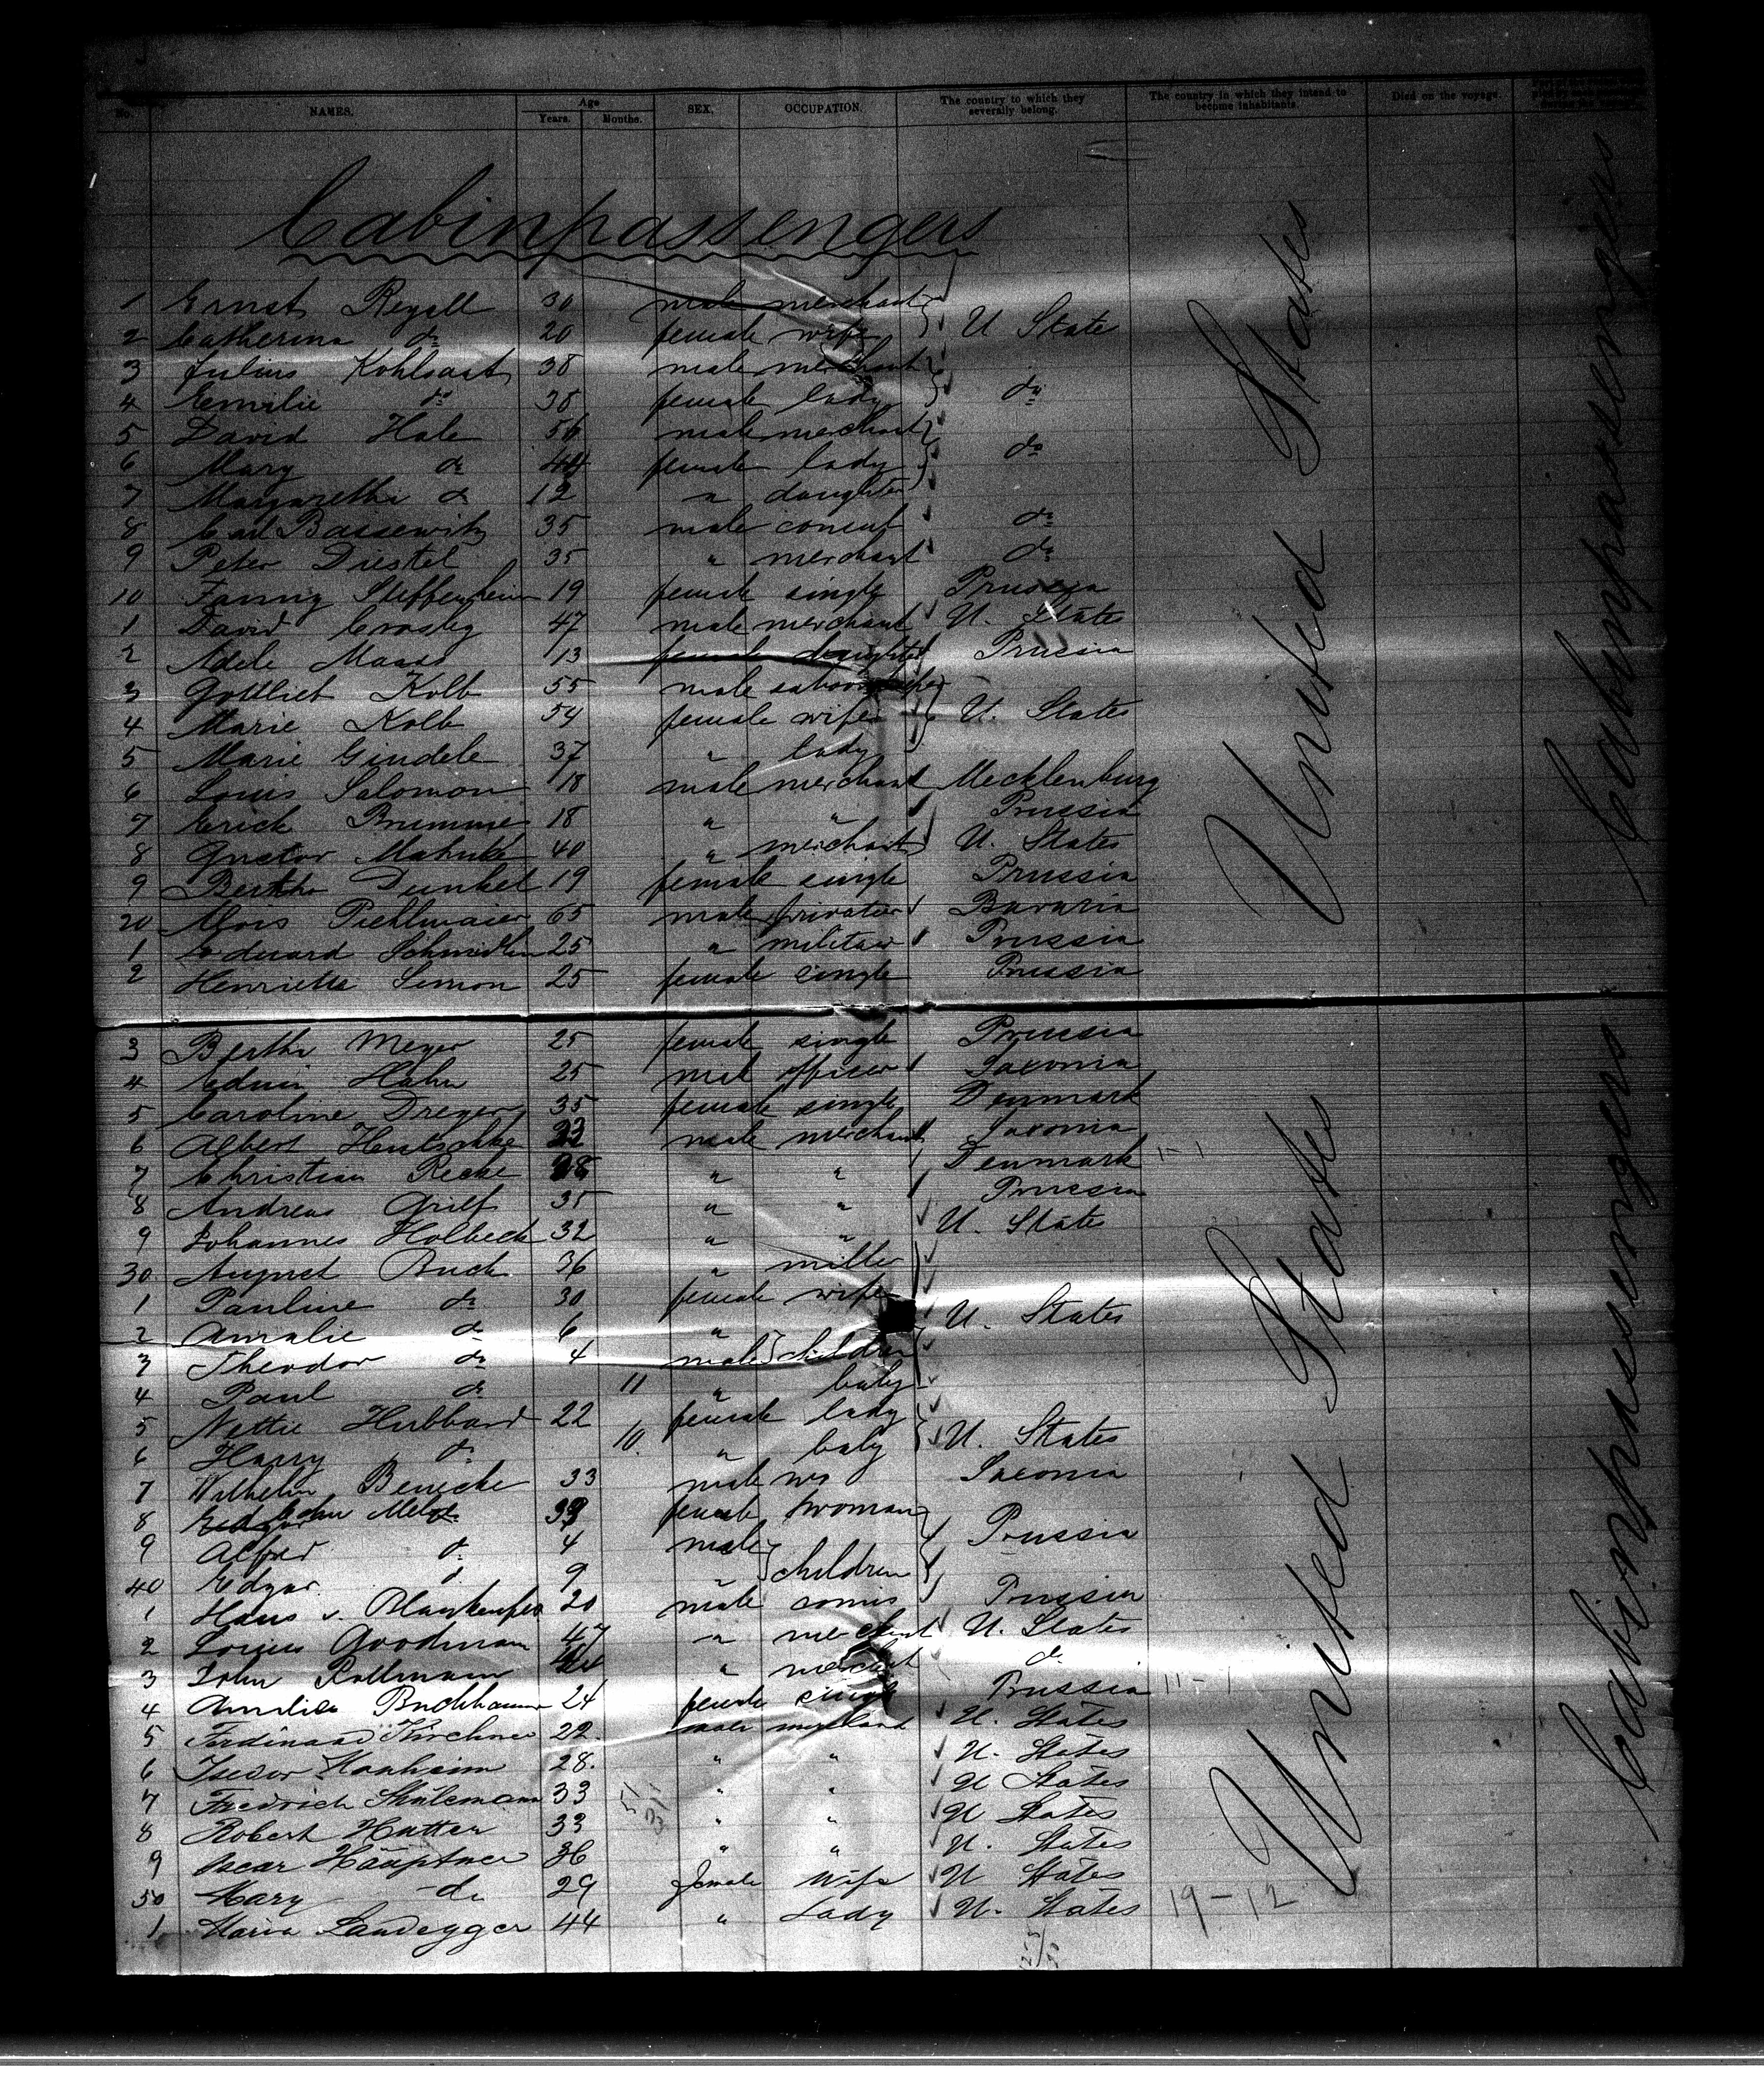 No. NAMES. Age Years. Months. SEX. OCCUPATION. The country to which they severally belong. The country in which they intend to become inhabitants. Died on the voyage.
Cabinpassengers
1 Ernst Regall 30 male merchant
2 Catherina do 20 female wife U State
3 Julius Kohlsaat 38 male merchant
4 Emilie do 38 female lady do
5 David Hale 56 male merchant
6 Mary do 44 female lady do
7 Margaretha do 12 " daughter
8 Carl Bassewitz 35 male do
9 Peter Diestel 35 " merchant do
10 Fanny 19 female single Prussia
1 David Crosby 47 male merchant U. States
2 Adele Maass 13 female daughter Prussia
3 Gottlieb Kolb 55 male
4 Marie Kolb 54 female wife U. States
5 Marie Gindele 37 " lady
6 Louis Salomon 18 male merchant Mecklenburg
7 Erick Brummer 18 " " Prussia
8 Gustav Mahnke 40 " merchant U. States
9 Bertha Dunkel 19 female single Prussia
20 Alois Pichlmaier 65 male privatier Bavaria
1 Eduard 25 " militair Prussia
2 Henriette Simon 25 female single Prussia
3 Bertha Meyer 25 female single Prussia
4 Edwin Hahn 25 male officer Saxonia
5 Caroline Dreyer 35 female single Denmark
6 Albert Hentschke 23 male merchant Saxonia
7 Christian 28 " " Denmark 1-1
8 Andreas Grill 35 " " Prussia
9 Johannes Holbeck 32 " " U. State
30 August Buck 36 " miller
1 Pauline do 30 female wife
2 Amalie do 6 " U. States
3 Theodor do 4 male children
4 Paul do 11 " baby
5 Nettie Hubbard 22 female lady
6 Harry do 10. " baby U. States
7 Wilhelm Benecke 33 male Saxonia
8 do 39 female woman
9 Alfred do 4 male Prussia
40 Edgar d. 9 " children
1 Hans v. 20 male comis Prussia
2 Goodman 47 " merchant U. States
3 John Rollmann 44 " merchant do
4 Buckhann 24 female single Prussia 11-1
5 Ferdinand Kirchner 22. male merchant U. States
6 Isidor Manheim 28. " " U. States
7 Fredrich 33 " " U States
8 Robert Hutter 33 " " U States
9 Oscar Hauptner 36 " " U. States
50 Mary do 29 female Wife U States
1 Maria Landegger 44 " Lady U. States 19-12
United States
Cabinpassengers
United States
Cabinpassengers
51
311